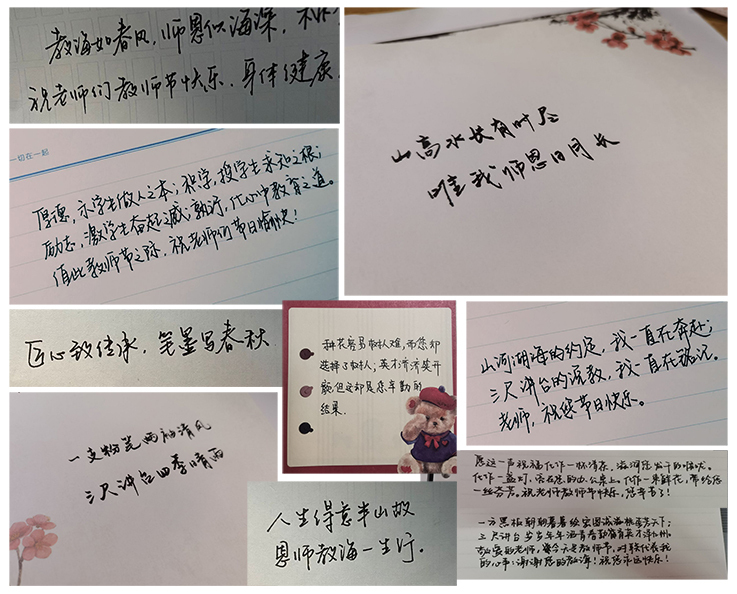 教诲如春风，师恩似海深，
祝老师们教师节快乐，身体健康
山高水长有时尽
唯我师恩日月长
一切在一起
厚德，示学生做人之本；积学，授学生求知之根；
励志，激学生奋起之诚；执行，化心中教育之道。
值此教师节之际，祝老师们节日愉快！
匠心致传承，笔墨写春秋
种花容易树人难，而您却
选择了树人；英才济济笑开
颜，但这却是您辛勤的
结果.
山河湖海的约定，我一直在奔赴；
三尺讲台的说教，我一直在铭记。
老师，祝您节日快乐。
一支粉笔两袖清风
三尺讲台四季晴雨
人生得意半山故
恩师教诲一生行。
愿这一声祝福化作一杯清茶，滋润您发干的喉咙。
化作一盆
化作一束鲜花，带给您
一丝芬芳。祝老师教师节快乐，您辛苦了！
一方黑板朝朝暮暮绘宏图诚滋桃李天下；
三尺讲台岁岁年年洒青春勤育英才泽九州。
敬爱的老师，
的心声：谢谢您的教诲！祝您永远快乐！